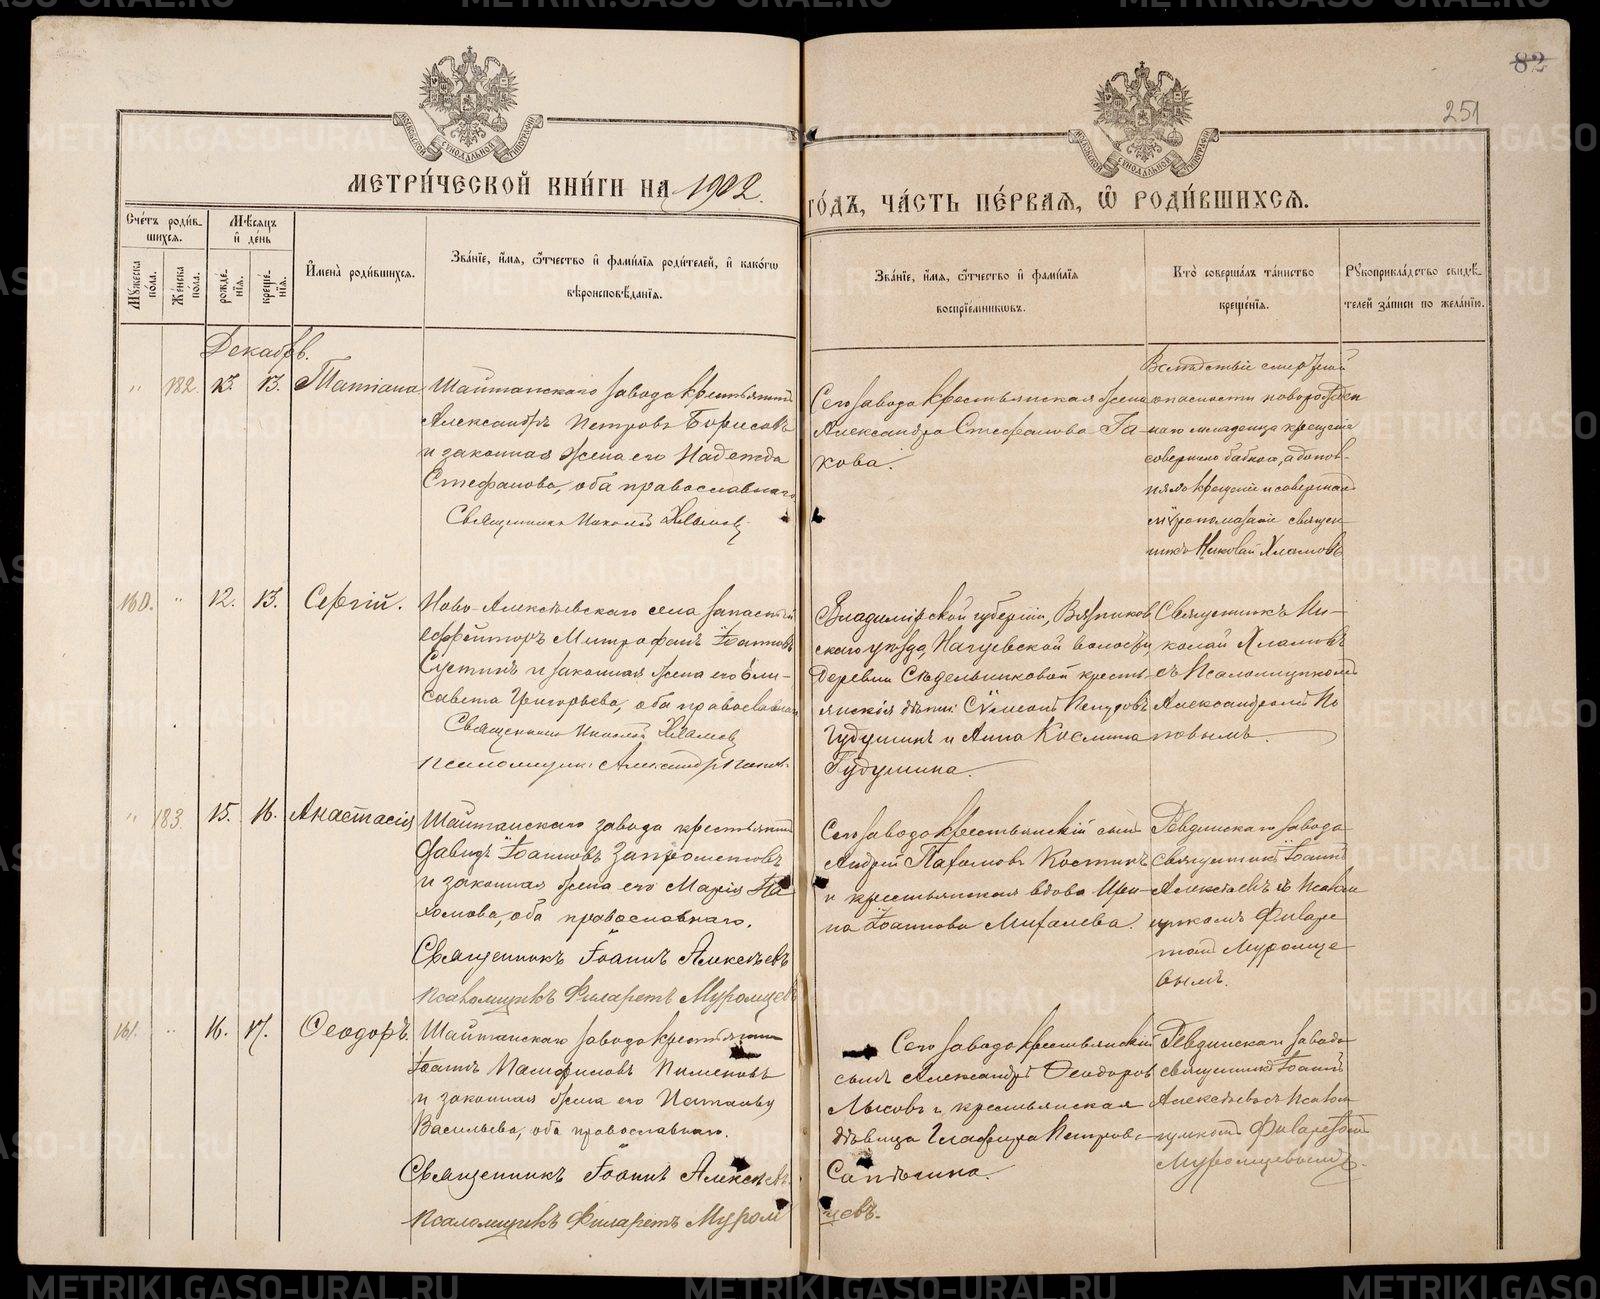 82
251
МЕТРИ́ЧЕСКОЙ КНИ́ГИ НА 1902.
ГО́ДЪ, ЧА́СТЬ ПЕ́РВАѦ, Ѡ҆ РОДИ́ВШИХСѦ.
Сче́тъ роди́в-
шихсѧ.
Мѣ́сѧцъ
и҆ де́нь
Мꙋ́жеска
по́ла.
Же́нска
по́ла.
рожде́-
нїѧ.
креще́-
нїѧ.
И҆мена̀ роди́вшихсѧ.
Зва́нїе, и҆́мѧ, ѻ҆́тчество и҆ фами́лїѧ роди́телей, и҆ како́гѡ
вѣроисповѣ́данїѧ.
Зва́нїе, и҆́мѧ, ѻ҆́тчество и҆ фами́лїѧ
воспрїе́мникѡвъ.
Кто̀ соверша́лъ та́инство
креще́нїѧ.
Рꙋкоприкла́дство свидѣ́-
телей за́писи по жела́нїю.
Декабрь.
" 182. 13. 13. Татіана
Шайтанскаго завода крестьянинъ
Александръ Петровъ Борисовъ
и законная жена его Надежда
Стефанова, оба православнаго
Священникъ Николай Хламовъ
Сего завода крестьянская жена
Александра Стефанова Га-
кова.
Вслѣдствіе смертной
опасности новорожден
наго младенца крещеніе
совершено бабкою, а допол-
нялъ крещеніе и совершалъ
мѵропомазаніе священ-
никъ Николай Хламовъ
160. " 12. 13. Сергій.
Ново-Алексѣевскаго села запасный
ефрейторъ Митрофанъ Іоанновъ
Сустинъ и законная жена его Ели-
савета Григорьева, оба православнаго
Священникъ Николай Хламовъ
Псаломщикъ Александръ Поповъ
Владимірской губерніи, Вязников
скаго уѣзда, Нагуевской волости
деревни Сѣдельниковой кресть-
янскія дѣти: Сѵмеонъ Петровъ
Гудушинъ и Анна Косьмина
Гудушина.
Священникъ Ни-
колай Хламовъ
съ Псаломщикомъ
Александромъ По
повымъ.
" 183. 15. 16. Анастасія
Шайтанскаго завода крестьянинъ
Давидъ Іоанновъ Запрометовъ
и законная жена его Марія Па
хомова, оба православнаго.
Священникъ Іоаннъ Алексѣевъ
Псаломщикъ Филаретъ Муромцевъ
Сего завода крестьянскій сынъ
Андрей Пахомовъ Костинъ
и крестьянская вдова Ири-
на Іоаннова Михалева.
Ревдинскаго завода
священникъ Іоаннъ
Алексѣевъ съ Псалом
щикомъ Филаре
томъ Муромце
вымъ.
161. " 16. 17. Ѳеодоръ.
Шайтанскаго завода крестьянинъ
Іоаннъ Памфиловъ Пименовъ
и законная жена его
Васильева, оба православнаго.
Священникъ Іоаннъ Алексѣевъ.
Псаломщикъ Филаретъ Муром
цевъ.
Сего завода крестьянскій
сынъ Александръ Ѳеодоров
Лысовъ и крестьянская
дѣвица Глафира Петрова
Сапѣгина.
Ревдинскаго завода
священникъ Іоаннъ
Алексѣевъ съ Псалом
щикомъ Филаретомъ
Муромцевымъ.
METRIKI.GASO-URAL.RU